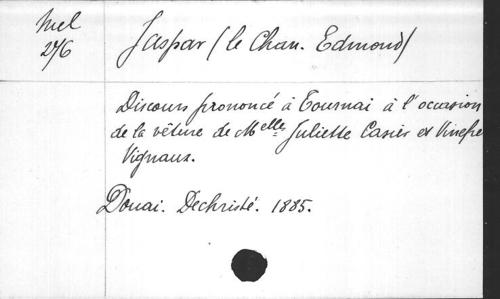 Mel
276
Jaspar (le Chan. Edmond)
Discours prononcé à Tournai à l'occasion
de la vêture de Melles Juliette Casier et Vinefre
Vignaux.
Douai. Dechristé. 1885.